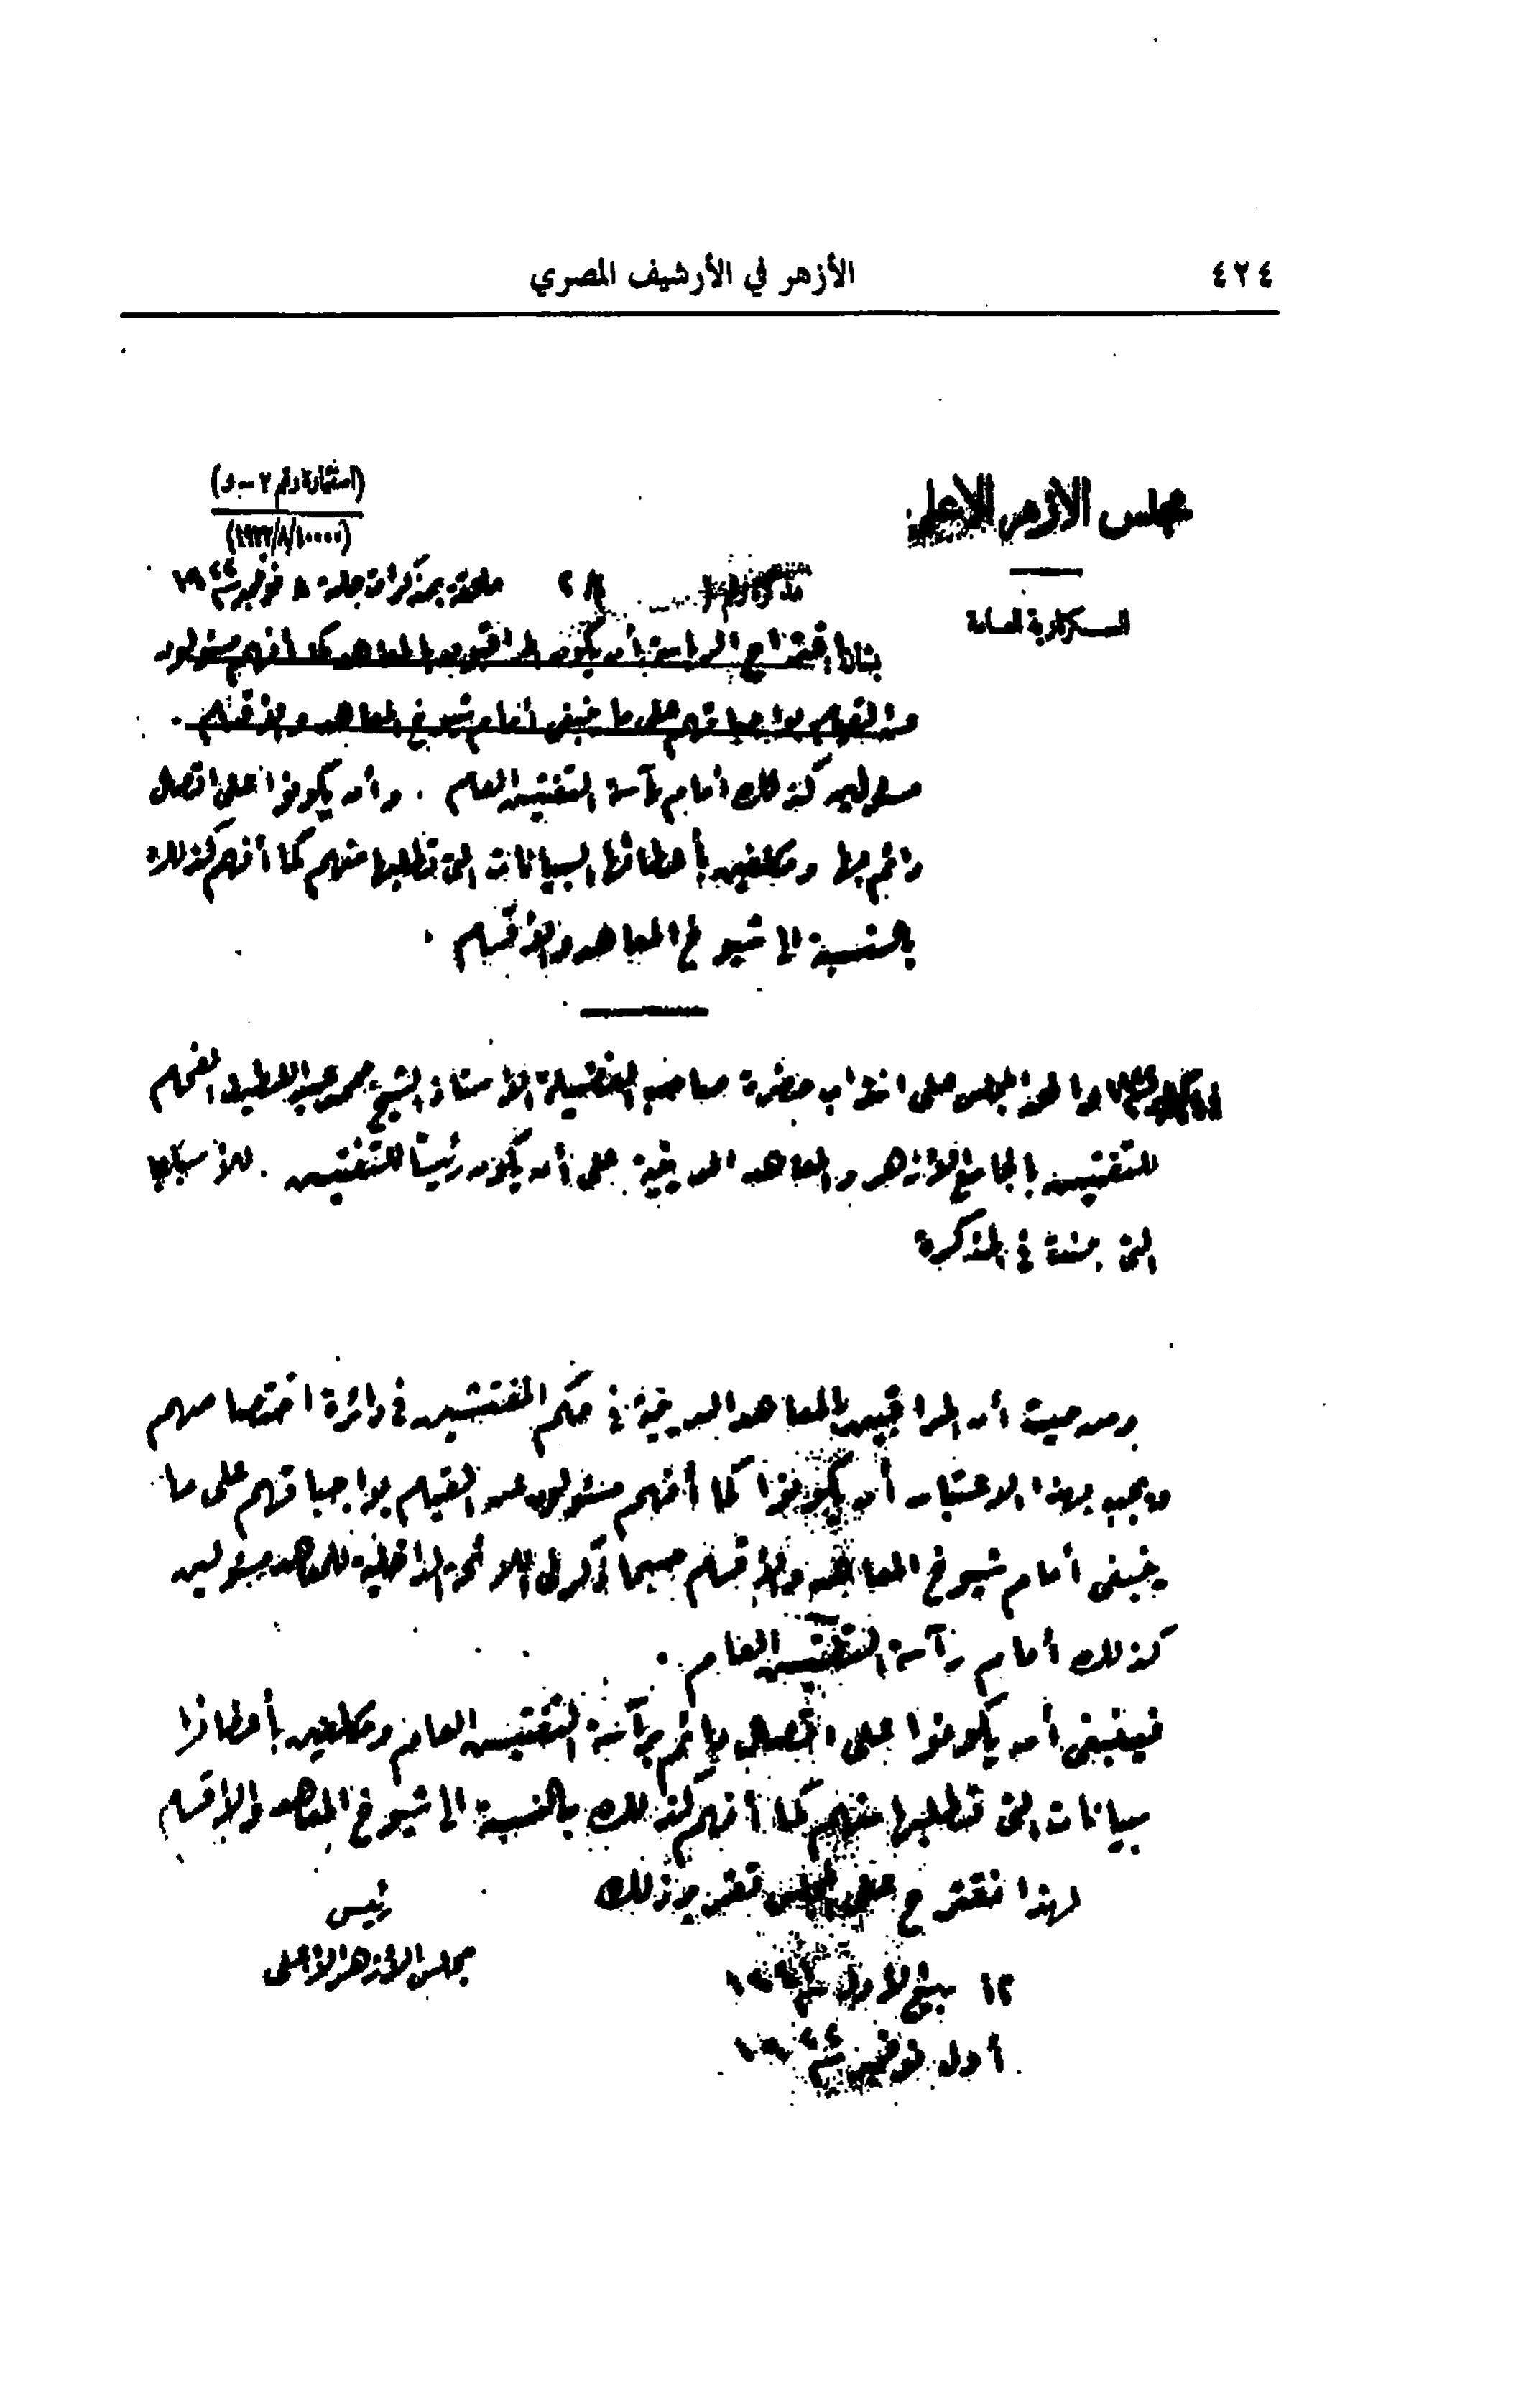 ٤٢٤
الأزهر في الأرشيف المصري
مجلس الأزهر الأعلى
السكرتارية العامة
(استمارة رقم ٢ – و)
ملحقة بمذكرات جلسة ٨ نوفمبر سنة ١٩٢٢
بشأن اقتراح الرياسة أن يكون المراقبون بالمعاهد كما أنهم مسئولون
عن القيام بواجباتهم على ما ينبغي أمام شيوخ المعاهد والأقسام .
مسئولين كذلك أمام رآسة التفتيش العام . وأن يكونوا على اتصال
دائم بها ومكلفين بأعطائها البيانات التي تطلبها منهم كما أنهم كذلك
بالنسبة الى شيوخ المعاهد والأقسام .
وافق المجلس على انتداب حضرة صاحب الفضيلة الأستاذ الشيخ محمد عبد اللطيف الفحام
للتفتيش بالجامع الأزهر والمعاهد الدينية على أن يكون رئيساً للتفتيش . للأسباب
التي بينت في المذكرة
ومن حيث أن المراقبين بالمعاهد الدينية في حكم المفتشين في دائرة اختصاصهم
ويجب بهذا الاعتبار أن يكونوا كما أنهم مسئولون عن القيام بواجباتهم على ما
ينبغي أمام شيوخ المعاهد والأقسام حسبما ذكر في اللائحة الداخلية للمعاهد مسئولين
كذلك أمام رآسة التفتيش العام .
فينبغي أن يكونوا على اتصال دائم برآسة التفتيش العام ومكلفين بأعطائها
بيانات التي تطلبها منهم كما أنهم كذلك بالنسبة الى شيوخ المعاهد والأقسام
لهذا نقترح على المجلس تقرير ذلك
رئيس
مجلس الأزهر الأعلى
١٢ ربيع الأول سنة
أول نوفمبر سنة ١٩٢٢